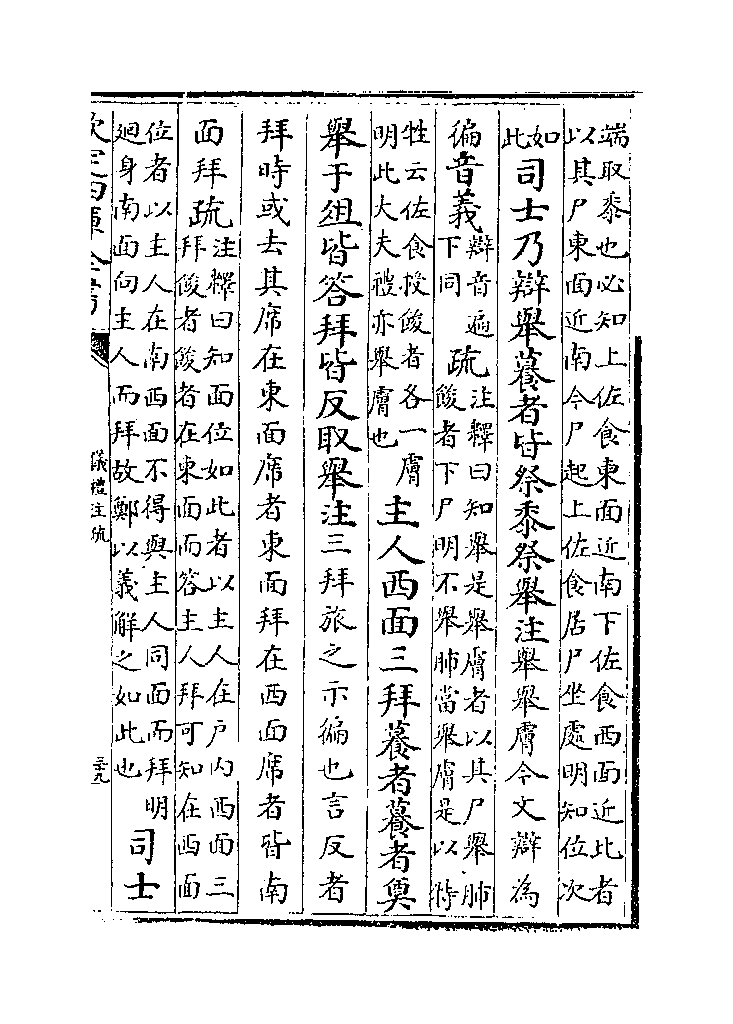 端取黍也必知上佐食東面近南下佐食西面近北者
以其尸東面近南今尸起上佐食居尸坐處明知位次
如此
司士乃辯舉養者皆祭黍祭舉注舉舉膚今文辯為
徧音義
辯音遍
下同
疏
注釋曰知舉是舉膚者以其尸舉肺
餕者下尸明不舉肺當舉膚是以特
牲云佐食授餕者各一膚
明此大夫禮亦舉膚也
主人西面三拜養者養者奠
舉于俎皆答拜皆反取舉注三拜旅之示徧也言反者
拜時或去其席在東面席者東面拜在西面席者皆南
面拜疏
注釋曰知面位如此者以主人在戶內西面三
拜餕者餕者在東面而答主人拜可知在西面
位者以主人在南西面不得與主人同面而拜明
廻身南面向主人而拜故鄭以義解之如此也
司士
欽定四庫全書
儀禮注疏